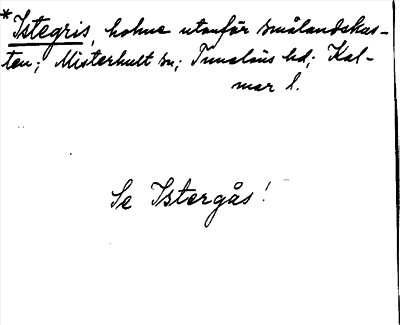 *Istegris, holme utanför smålandskus-
ten; Misterhult sn; Tunaläns hd; Kal-
mar l.
Se Istergås!